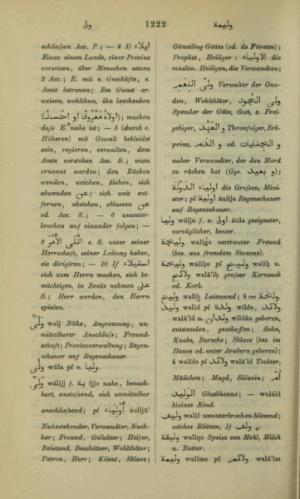 ولى 1222 وليمة
schliefsen Acc. P.; — 4 If ايلاء
Einen einem Lande, einer Provinz
vorsetzen, über Menschen setzen
2 Acc.; E. mit e. Geschäfte, e.
Amte betrauen; Em Gunst er-
weisen, wohlthun, ihn beschenken
(اولاه معروفا او احسانا); machen
dafs E. nahe ist; — 5 (durch e.
Höheren) mit Gewalt bekleidet
sein, regieren, verwalten, dem
Amte vorstehen Acc. S.; wozu
ernannt werden; den Rücken
wenden, weichen, fliehen, sich
abwenden عن; sich weit ent-
fernen, abstehen, ablassen عن
od. Acc. S.; — 6 ununter-
brochen auf einander folgen; —
e. S. unter seiner
Herrschaft, seiner Leitung haben,
sie dirigiren; — 10 If استيلاء
sich zum Herrn machen, sich be-
mächtigen, in Besitz nehmen على
S.; Herr werden, den Herrn
spielen.
ولى walj Nähe, Angrenzung, un-
mittelbarer Anschlufs; Freund-
schaft; Provinzverwaltung; Regen-
schauer auf Regenschauer.
ولى wála pl v.
ولى wálijj f. ة ijje nahe, benach-
bart, anstofsend, sich unmittelbar
anschliefsend; pl اولياء áulijâ’
Nahestehender, Verwandter, Nach-
bar; Freund, Geliebter; Helfer,
Beistand, Beschützer, Wohlthäter;
Patron, Herr; Klient, Sklave;
Günstling Gottes (od. de Fürsten);
Prophet, Heiliger: الاولياء die
muslim. Heiligen, die Verwandten;
ولى النعم Verwalter der Gna-
den, Wohlthäter,
Spender der Güte, Gott, s. Frei-
gebiger, ولى العهد Thronfolger, Erb-
prinz,
naher Verwandter, der den Mord
zu rächen hat (Ggs.
اولياء الدولة die Grofsen, Mini-
ster; pl áulije Regenschauer
auf Regenschauer.
wúlja f. v. اولى áula geeigneter,
vorzüglicher, besser.
وليجة walîge vertrauter Freund
(bes. aus fremdem Stamme).
walîhe pl walîh u.
walâ’ih grofser Kornsack
od. Korb.
wulaih Leinwand; 9 =
وليد walîd pl wúlde,
walâ’id u. ولدان wildân geboren,
entstanden, geschaffen; Sohn,
Knabe, Bursche; Sklave (bes. im
Hause od. unter Arabern geboren);
وليدة walîde pl ولائد walâ’id Tochter,
Mädchen; Magd, Sklavin;
Gluckhenne; — wulaid
kleines Kind.
walîf ununterbrochen blitzend;
solches Blitzen, If
walîqe Speise von Mehl, Milch
u. Butter.
وليمة walîme pl ولائم walâ’im